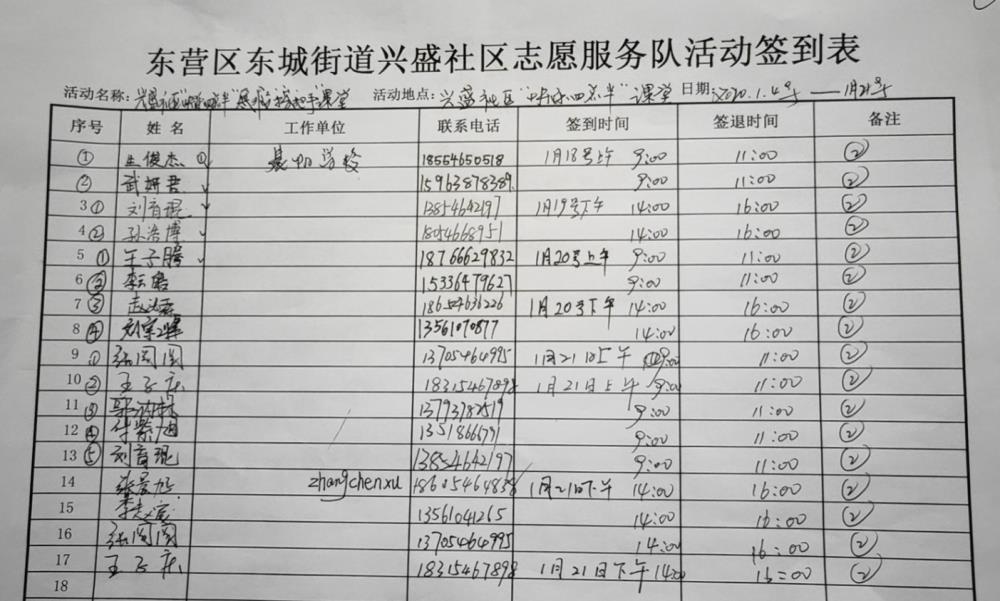 东营区东城街道兴盛社区志愿服务队活动签到表
活动名称: 兴盛社区 课堂 活动地点: 兴盛社区"四点半"课堂 日期: 2020.1.4号——1月21号
序号 姓名 工作单位 联系电话 签到时间 签退时间 备注
① 王俊杰 ① 18554650518 1月18号上午 9:00 11:00 ②
② 武妍君 15963878389 9:00 11:00 ②
3 ① 刘育琨 13854642197 1月19号下午 14:00 16:00 ②
4 ② 孙浩博 18054668951 14:00 16:00 ②
5 ① 牟子腾 18766629832 1月20号上午 9:00 11:00 ②
6 ② 15336479627 9:00 11:00 ②
7 ③ 18654636226 1月20号下午 14:00 16:00 ②
8 ④ 13561070877 14:00 16:00 ②
9 ① 张閔圆 13705464995 1月21日上午 9:00 11:00 ②
10 ② 王子庆 18315467898 1月21日上午 9:00 11:00 ②
11 ③ 13793782519 9:00 11:00 ②
12 ④ 9:00 11:00 ②
13 ⑤ 刘育琨 13854642197 9:00 11:00 ②
14 zhangchenxu 18605464838 1月21日下午 14:00 16:00 ②
15 13561041265 14:00 16:00 ②
16 13705464995 14:00 16:00 ②
17 王子庆 18315467898 1月21日下午 14:00 16:00 ②
18